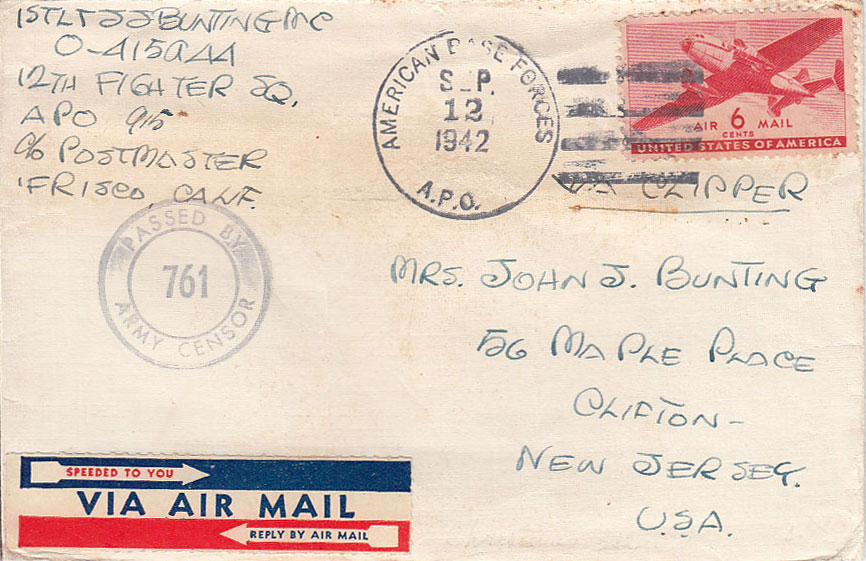 1ST LT J J BUNTING MC
O-415944
12TH FIGHTER SQ.
APO 915
c/o POSTMASTER
'FRISCO, CALIF.
AMERICAN BASE FORCES
SEP.
12
1942
A.P.O.
AIR 6 MAIL
CENTS
UNITED STATES OF AMERICA
VIA CLIPPER
PASSED BY
761
ARMY CENSOR
MRS. JOHN J. BUNTING
56 MAPLE PLACE
CLIFTON-
NEW JERSEY.
U.S.A.
SPEEDED TO YOU
VIA AIR MAIL
REPLY BY AIR MAIL